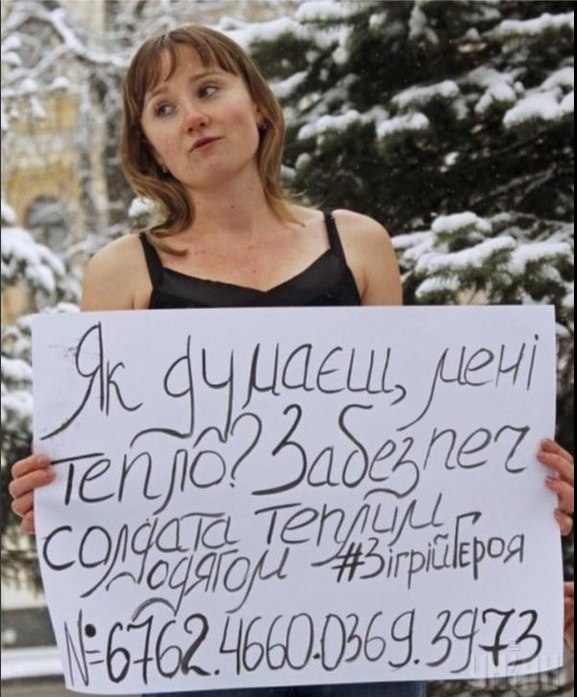 Як думаєш, мені
тепло? Забезпеч
солдата теплим
одягом #ЗігрійГероя
№=6762.4660.0369.3973
УНІАН